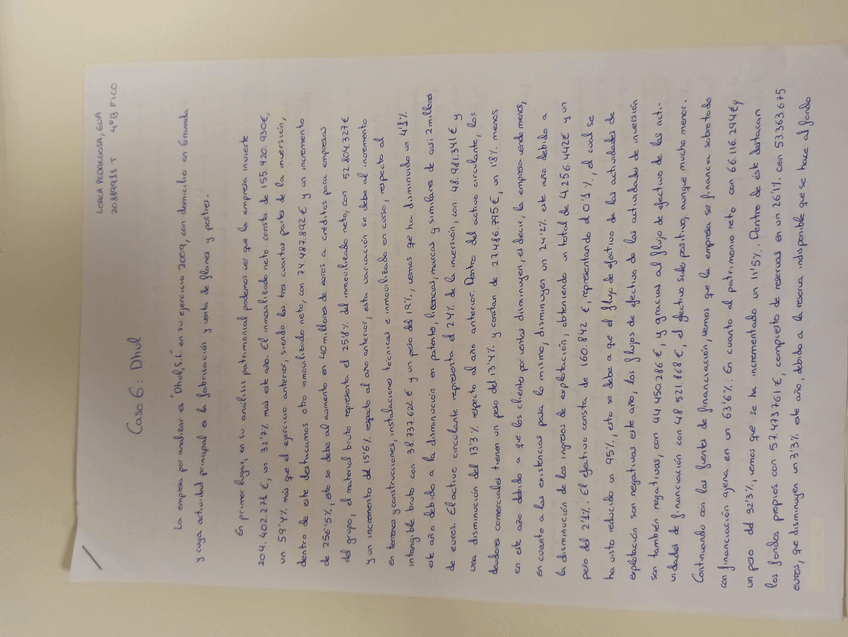 LORCA PEDREGOSA, EVA
4ºB FICO
Caso 6: Dhul
La empresa por analizar es "Dhul, S.L." en su ejercicio 2009, con domicilio en Granada
y cuya actividad principal es la fabricación y venta de flanes y postres.
En primer lugar, en su análisis patrimonial podemos ver que la empresa invierte
204.402.271 €, un 32'7% más este año. El inmovilizado neto consta de 155.420.930€,
un 59'4% más que el ejercicio anterior, siendo las tres cuartas partes de la inversión,
dentro de este destacamos otro inmovilizado neto, con 74.487.892 € y un incremento
de 256'5%, esto se debe al aumento en 40 millones de euros a créditos para empresas
del grupo, el material bruto representa el 25'8% del inmovilizado neto, con 52.804.327€
y un incremento del 15'6% respecto al año anterior, esta variación se debe al incremento
en terrenos y construcciones, instalaciones técnicas e inmovilizado en curso, respecto al
intangible bruto con 38.737.622 € y un peso del 19%, vemos que ha disminuido un 4'1%
este año debido a la disminución en patentes, licencias, marcas y similares de casi 2 millones
de euros. El activo circulante representa el 24% de la inversión, con 48.981.341 € y
una disminución del 13'3% respecto al año anterior. Dentro del activo circulante, los
deudores comerciales tienen un peso del 13'4% y constan de 27.416.795 €, un 18% menos
en este año debido a que los clientes por ventas disminuyen, es decir, la empresa vende menos,
en cuanto a las existencias pasa lo mismo, disminuyen un 24'2% este año debido a
la disminución de los ingresos de explotación, obteniendo un total de 4.256.442€ y un
peso del 2'1%. El efectivo consta de 160.842 €, representando el 0'1%, el cual se
ha visto reducido un 95%, esto se debe a que el flujo de efectivo de las actividades de
explotación son negativas este año, los flujos de efectivo de las actividades de inversión
son también negativas, con 44.450.286 €, y gracias al flujo de efectivo de las acti-
vidades de financiación con 48.521.868 €, el efectivo sale positivo, aunque mucho menor.
Continuando con las fuentes de financiación, vemos que la empresa se financia sobre todo
con financiación ajena en un 63'6%. En cuanto al patrimonio neto con 66.116.294€ y
un peso del 32'3%, vemos que se ha incrementado un 11'5%. Dentro de éste destacan
los fondos propios con 57.473.761 €, compuesto de reservas en un 26'1% con 53.363.675
euros, que disminuyen un 3'3% este año, debido a la reserva indisponible que se hace al fondo